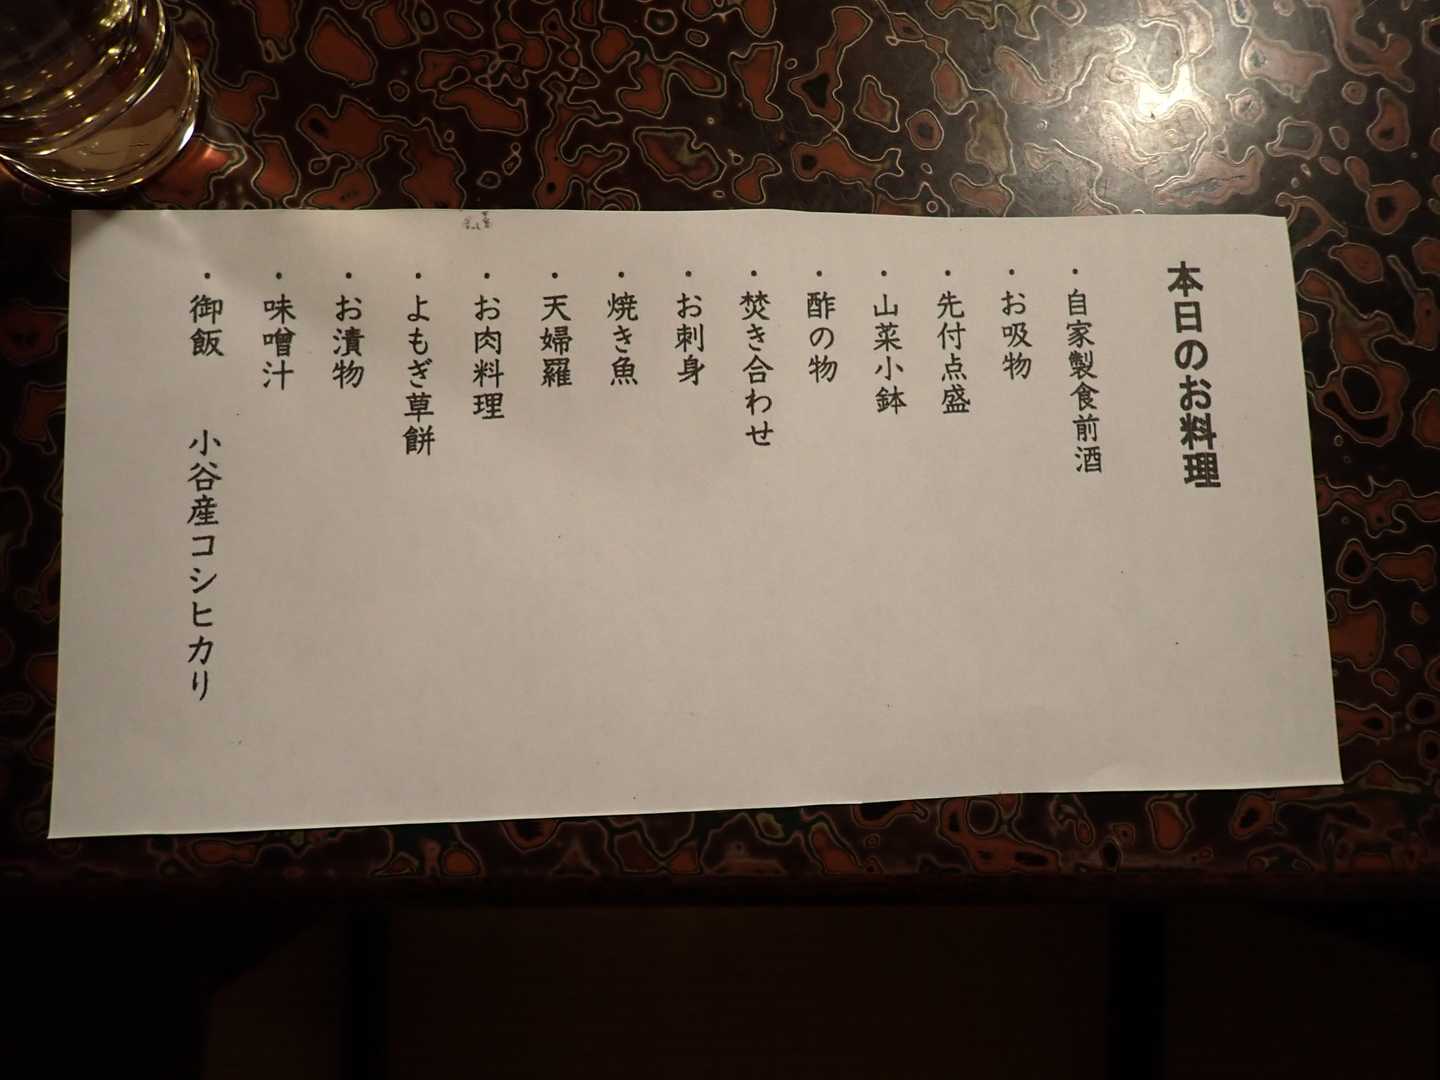 本日のお料理
・自家製食前酒
・お吸物
・先付点盛
・山菜小鉢
・酢の物
・焚き合わせ
・お刺身
・焼き魚
・天婦羅
・お肉料理
・よもぎ草餅
・お漬物
・味噌汁
・御飯　小谷産コシヒカリ